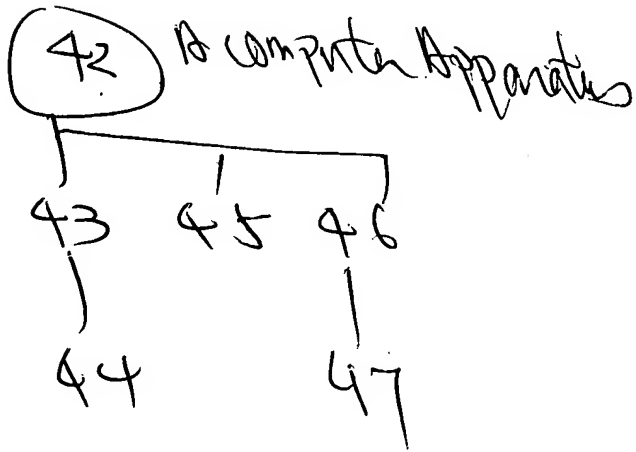 42 A computer Apparatus
43 45 46
44 47